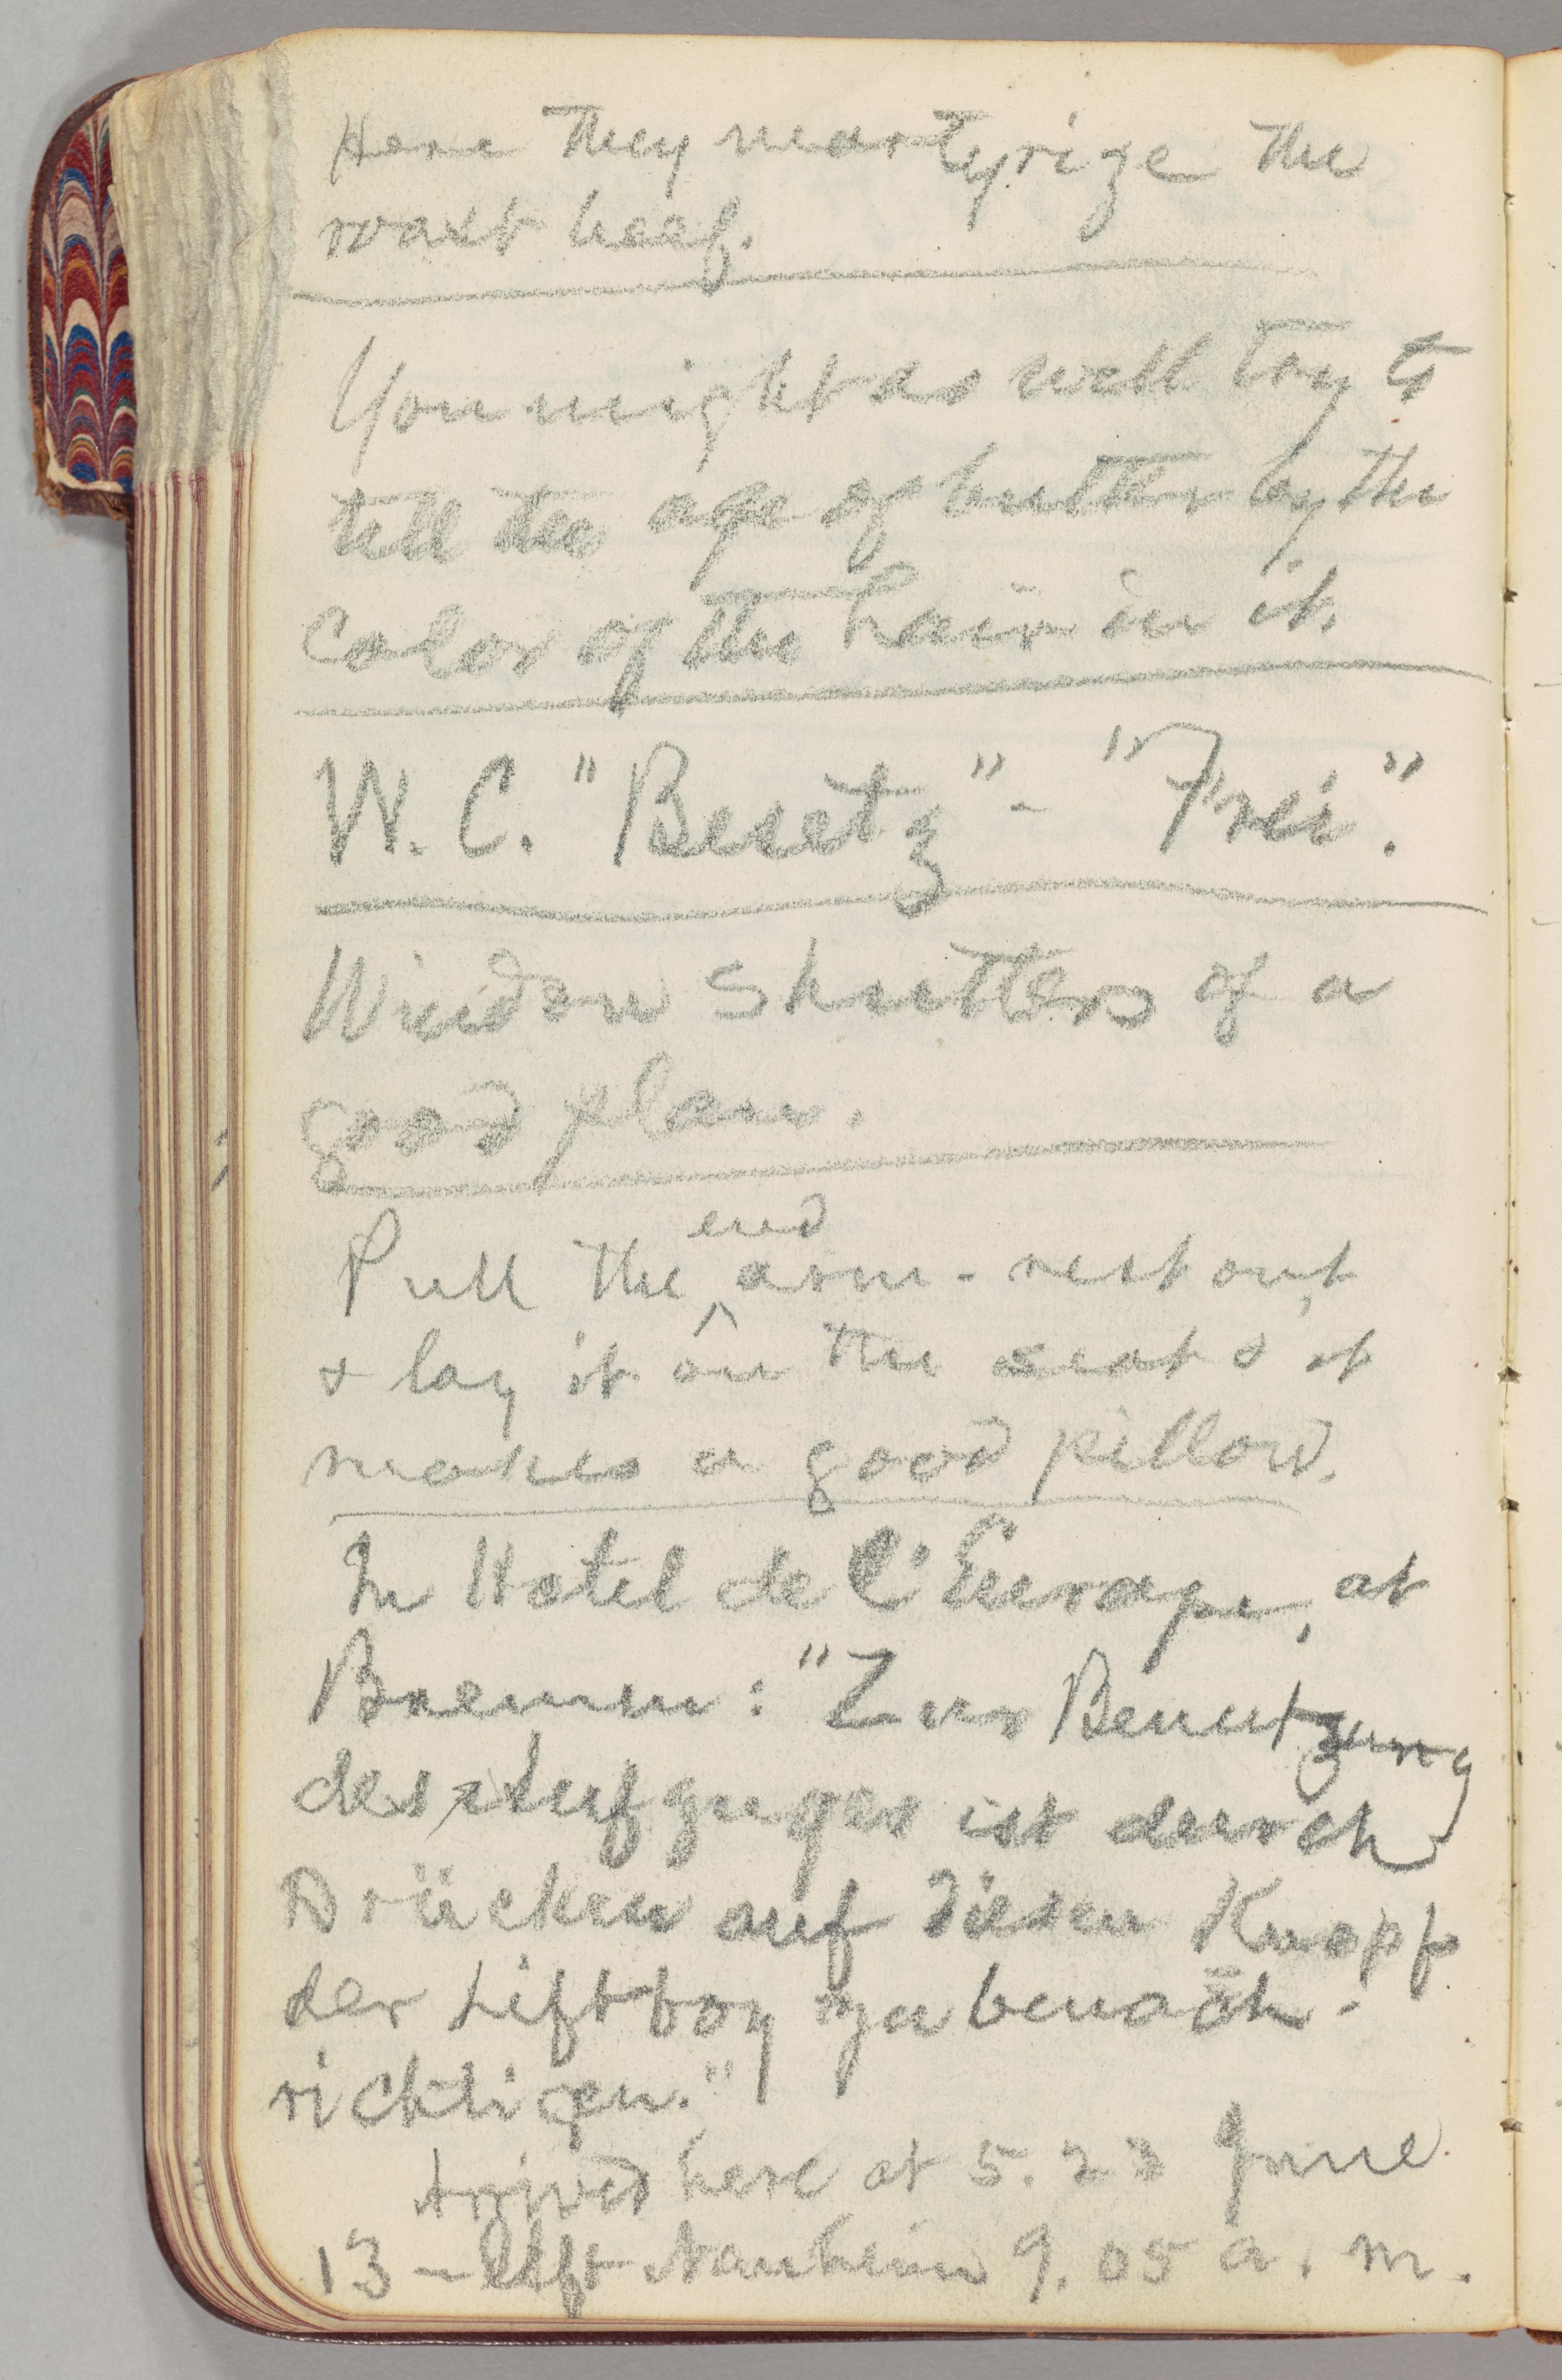 Here they martyrize the
roast beef.
You might as well try to
tell the age of butter by the
color of the hair in it.
W. C. "Besetz" - "Frei".
Window shutters of a
good plan.
end
Pull the ^ arm-rest out,
& lay it on the seat & it
makes a good pillow.
In Hotel de l'Europe, at
Bremen: "Zur Benutzung
des Aufzuges ist durch
Drücken auf diesen Knopf
der Liftboy zu benach-
richtigen."
Arrived here at 5.23 June
13 — left Nauheim 9.05 a. m.